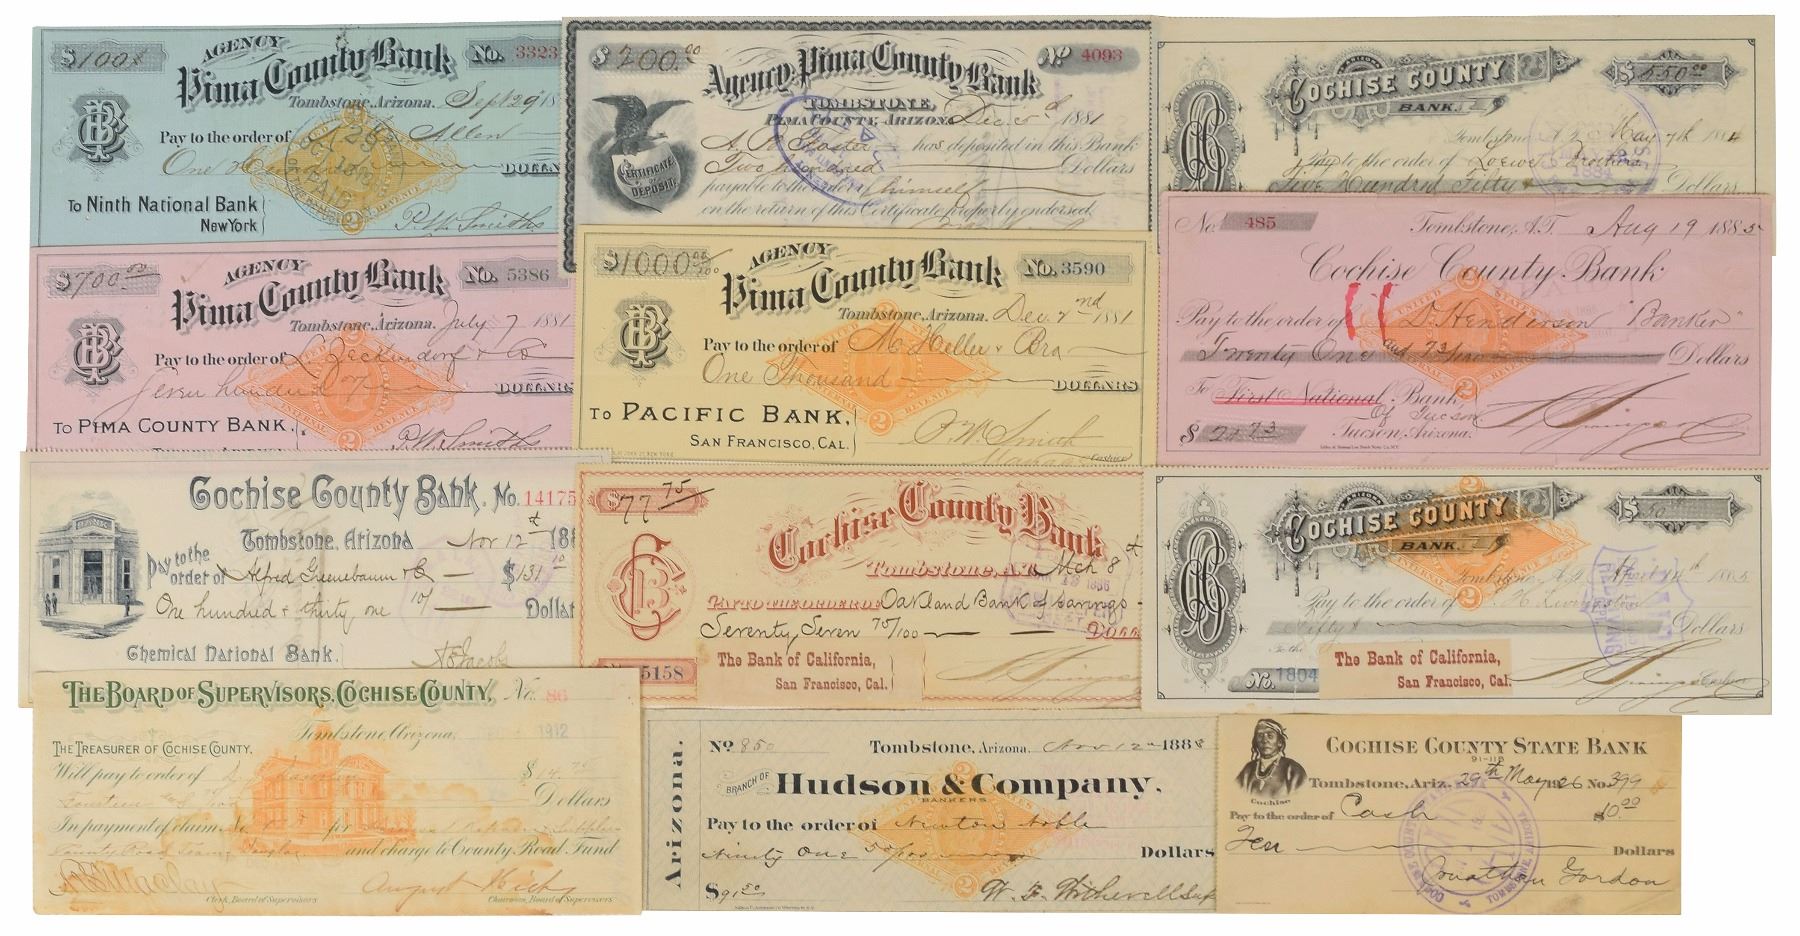 $100.
AGENCY
Pima County Bank
No. 3323
Tombstone, Arizona. Sept 29 18
Pay to the order of Allen
One Hundred
DOLLARS
To Ninth National Bank
New York
P. W. Smith
$200.00
Agency Pima County Bank
No 4093
TOMBSTONE,
PIMA COUNTY, ARIZONA, Dec 5 1881
A. R. Foster has deposited in this Bank
Two hundred Dollars
payable to the order of himself
on the return of this Certificate properly endorsed.
CERTIFICATE OF DEPOSIT
ARIZONA
COCHISE COUNTY
BANK.
$550.00
Tombstone, A.T. May 7th 188
Pay to the order of Loewe Brothers
Five Hundred Fifty Dollars
$700.00
AGENCY
Pima County Bank
No. 5386
Tombstone, Arizona. July 7 1881
Pay to the order of L. Zeckendorf & Co
Seven hundred
DOLLARS
TO PIMA COUNTY BANK,
P. W. Smith
$1000.00
AGENCY
Pima County Bank
No. 3590
Tombstone, Arizona. Dec. 2nd 1881
Pay to the order of M Heller & Bro
One Thousand
DOLLARS
TO PACIFIC BANK,
SAN FRANCISCO, CAL.
P. W. Smith
Manager Cashier
UNITED STATES
INTERNAL REVENUE
2
No. 485
Tombstone, A.T. Aug 19 1885
Cochise County Bank
Pay to the order of L. Henderson "Banker"
Twenty One and 73/100 Dollars
To First National Bank
Of Tucson
Tucson, Arizona.
$21.73
Cochise County Bank.
No. 14175
Tombstone, Arizona Nov 12 188
BANK
Pay to the order of Alfred Greenebaum & Co $131.10
One hundred & thirty one 10/ Dollars
Chemical National Bank.
$77.75
Cochise County Bank
Tombstone, A.T. Mch 8
PAY TO THE ORDER OF Oakland Bank of Savings
Seventy Seven 75/100
5158
The Bank of California,
San Francisco, Cal.
ARIZONA
COCHISE COUNTY
BANK.
$50
Tombstone, A.T. April 14th 1885
Pay to the order of H. Livingston
Fifty Dollars
No. 1804
The Bank of California,
San Francisco, Cal.
Cashier
THE BOARD OF SUPERVISORS, COCHISE COUNTY,
No. 86
Tombstone, Arizona, 1912
THE TREASURER OF COCHISE COUNTY,
Will pay to order of
$14.75
Fourteen Dollars
In payment of claim No. for Supplies
County Road and charge to County Road Fund
Clerk, Board of Supervisors
Chairman, Board of Supervisors
Arizona.
No 850
Tombstone, Arizona, Nov 12 1888
BRANCH OF
Hudson & Company,
BANKERS
Pay to the order of Newton Noble
Ninety One 50/100 Dollars
$91.50
Cochise
COCHISE COUNTY STATE BANK
91-118
Tombstone, Ariz. 29th May 1926 No. 399
Pay to the order of Cash $10.00
Ten Dollars
Jonathan Gordon